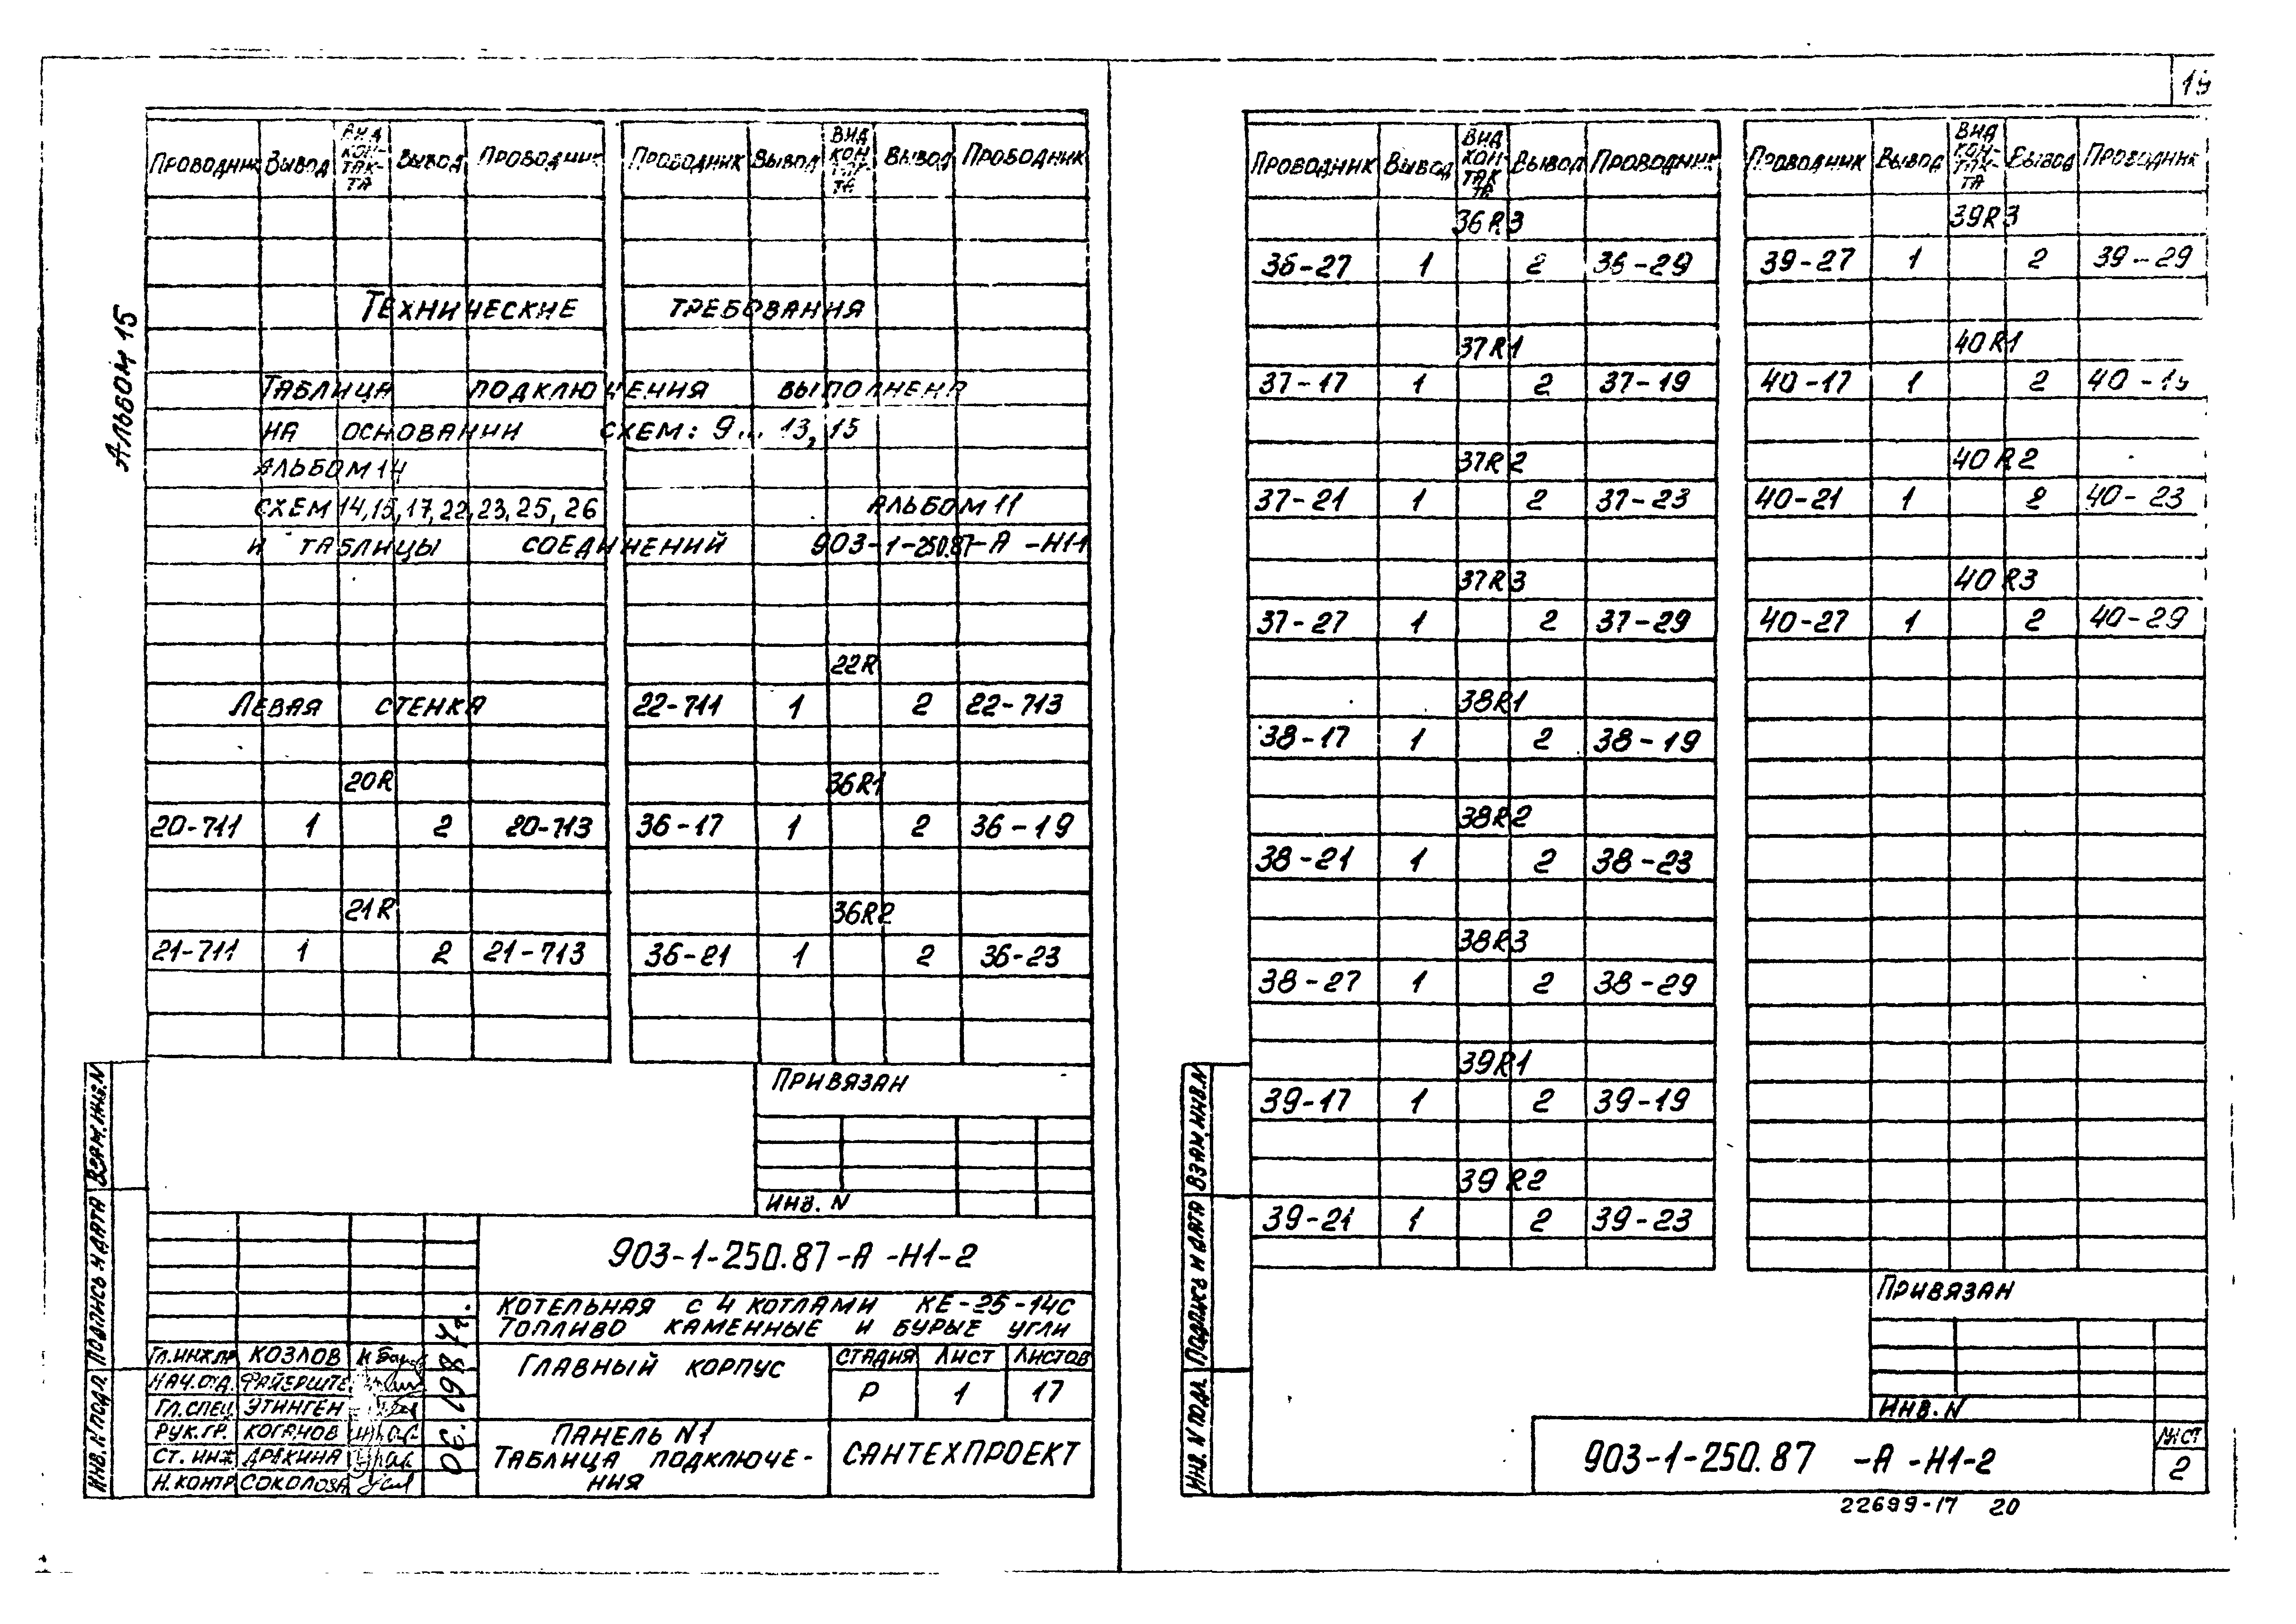 19
Альбом 15
Проводник Вывод Вид контакта Вывод Проводник Проводник Вывод Вид контакта Вывод Проводник
Технические требования
Таблица подключения выполнена
на основании схем: 9... 13, 15
альбом 14
схем 14, 15, 17, 22, 23, 25, 26 альбом 11
и таблицы соединений 903-1-250.87-А -Н1-1
22R
Левая стенка 22-711 1 2 22-713
20R 36R1
20-711 1 2 20-713 36-17 1 2 36-19
21R 36R2
21-711 1 2 21-713 36-21 1 2 36-23
Привязан
Инв. N
903-1-250.87-А -Н1-2
Котельная с 4 котлами КЕ-25-14С
Топливо каменные и бурые угли
Главный корпус
Стадия Лист Листов
Р 1 17
Панель N1
Таблица подключе-
ния
Сантехпроект
Гл.инж.пр Козлов
Нач.отд. Файерште
Гл.спец. Этинген
Рук.гр. Коганов
Ст. инж Дрекина
Н.контр Соколова
06.1987г.
Инв. N подл. Подпись и дата Взам.инв.N
Проводник Вывод Вид контакта Вывод Проводник Проводник Вывод Вид контакта Вывод Проводник
36R3 39R3
36-27 1 2 36-29 39-27 1 2 39-29
37R1 40R1
37-17 1 2 37-19 40-17 1 2 40-19
37R2 40R2
37-21 1 2 37-23 40-21 1 2 40-23
37R3 40R3
37-27 1 2 37-29 40-27 1 2 40-29
38R1
38-17 1 2 38-19
38R2
38-21 1 2 38-23
38R3
38-27 1 2 38-29
39R1
39-17 1 2 39-19
39R2
39-21 1 2 39-23
Привязан
Инв. N
Инв. N подл. Подпись и дата Взам.инв.N
903-1-250.87 -А -Н1-2
Лист
2
22699-17 20